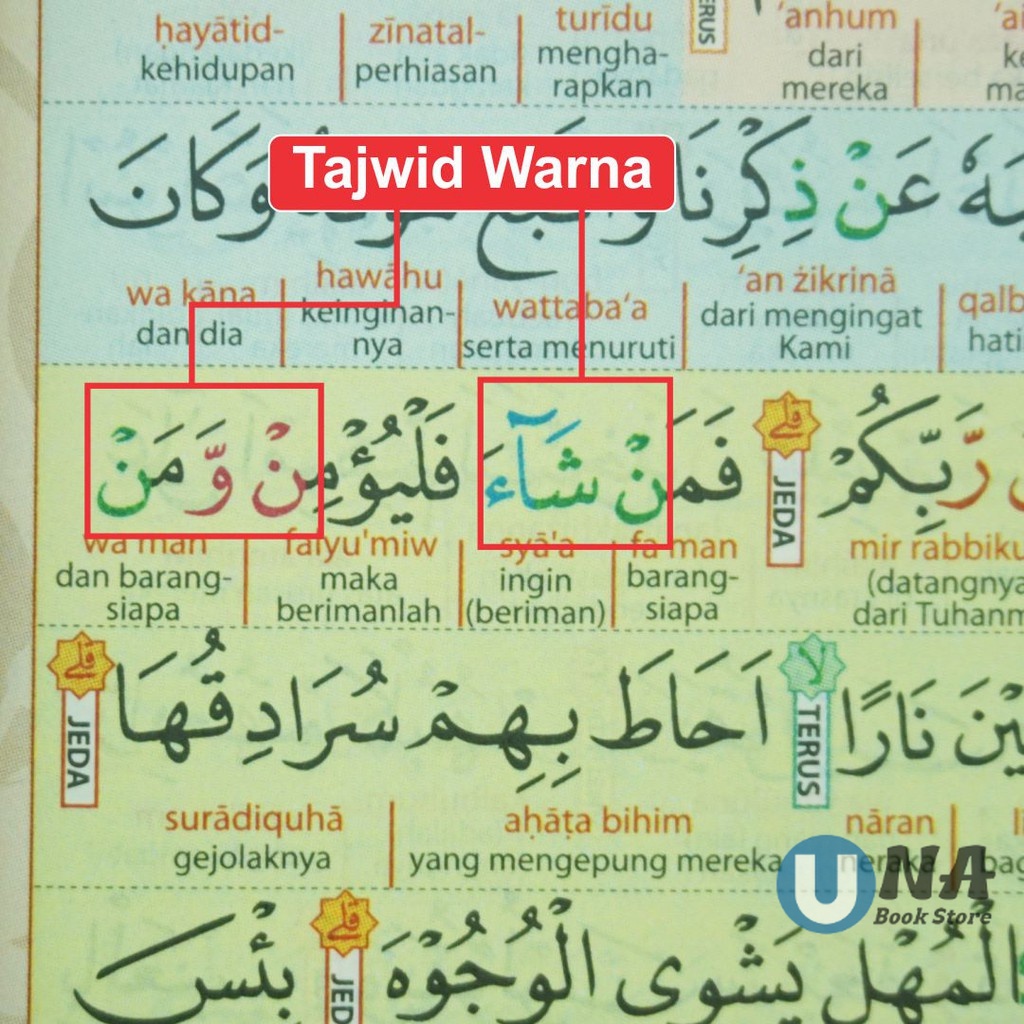 ḥayātid- zīnatal- turīdu 'anhum
kehidupan perhiasan mengha-rapkan dari mereka
TERUS
Tajwid Warna
عَنْ ذِكْرِنَا وَكَانَ
wa kāna hawāhu wattaba'a 'an żikrinā
dan dia keinginan-nya serta menuruti dari mengingat Kami
رَّبِّكُمْ ۗ فَمَنْ شَاۤءَ فَلْيُؤْمِنْ وَّمَنْ
JEDA
wa man falyu'miw syā'a fa man mir rabbiku
dan barang-siapa maka berimanlah ingin (beriman) barang-siapa (datangnya dari Tuhanm
نَارًا اَحَاطَ بِهِمْ سُرَادِقُهَا
JEDA TERUS
surādiquhā aḥāṭa bihim nāran
gejolaknya yang mengepung mereka neraka
UNA
Book Store
الْمُهْلِ يَشْوِى الْوُجُوْهَ ۗ بِئْسَ
JED